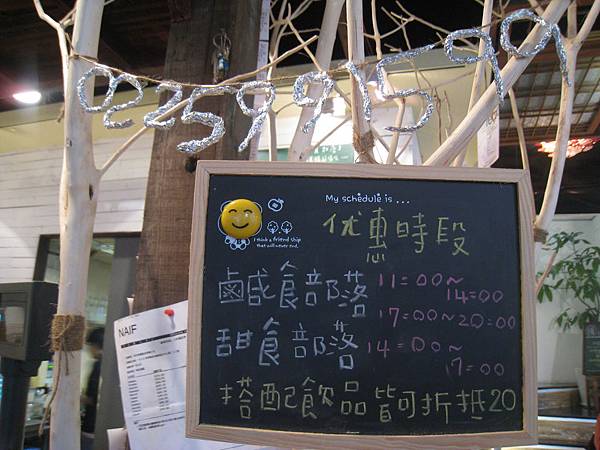 0259915099
My schedule is ...
I think a friend ship
that will never end.
优惠時段
鹹食部落 11:00~
14:00
17:00~20:00
甜食部落 14:00~
17:00
搭配飲品皆可折抵20
NAIF